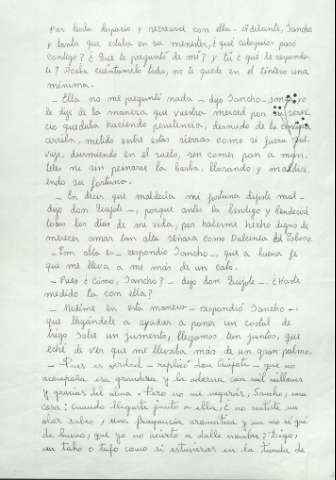 toda despacio y recrearse con ella. Adelante, Sancho
y tanto que estaba en su menester, ¿qué coloquios pasó
contigo? ¿Qué te preguntó de mí? y tú ¿qué le respondis-
te? Acaba cuéntamelo todo, no te quede en el tintero una
mínima.
– Ella no me preguntó nada – dijo Sancho –
le dije de la manera que vuestra merced por su servi-
cio quedaba haciendo penitencia, desnudo de la cintura
arriba, metido entre estas sierras como si fuera sal-
vaje, durmiendo en el suelo, sin comer pan a man-
teles ni sin peinarse la barba, llorando y maldici-
endo su fortuna.
– En decir que maldecía mi fortuna dijiste mal –
dijo don Quijote –, porque antes la bendigo y bendeciré
todos los días de mi vida, por haberme hecho digno de
merecer amar tan alta señora como Dulcinea del Toboso.
– Tan alta es – respondió Sancho –, que a buena fe
que me lleva a mí más de un
– Pues ¿Cómo, Sancho? – dijo don Quijote –. ¿Haste
medido tú con ella?
– Medíme en esta manera – respondió Sancho –:
que llegándole a ayudar a poner un costal de
trigo sobre un jumento, llegamos tan juntos, que
eché de ver que me llevaba más de un gran palmo.
– Pues es verdad – replicó don Quijote – que no
acompaña esa grandeza y la adorna con mil millones
y gracias del alma. Pero no me negarás, Sancho, una
cosa: cuando llegaste junto a ella, ¿no sentiste un
olor sabeo, una fragancia aromática y un no sé qué
de bueno, que yo no acierto a dalle nombre? Digo,
un taho o tufo como si estuvieras en la tienda de